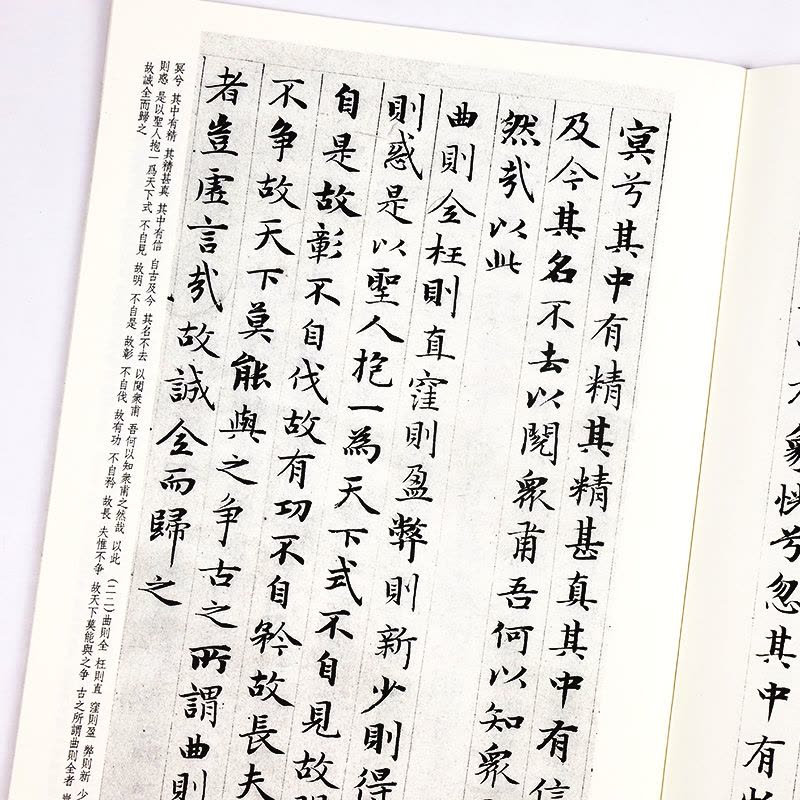 象恍兮忽其中有
冥兮其中有精其精甚真其中有信
及今其名不去以閱衆甫吾何以知衆
然哉以此
曲則全枉則直窪則盈弊則新少則得
則惑是以聖人抱一為天下式不自見故明
自是故彰不自伐故有功不自矜故長夫
不争故天下莫能與之争古之所謂曲則
者豈虛言哉故誠全而歸之
冥兮 其中有精 其精甚真 其中有信 自古及今 其名不去 以閱衆甫 吾何以知衆甫之然哉 以此 (二二)曲則全 枉則直 窪則盈 弊則新 少
則惑 是以聖人抱一爲天下式 不自見 故明 不自是 故彰 不自伐 故有功 不自矜 故長 夫惟不争 故天下莫能與之争 古之所謂曲則全者 豈
故誠全而歸之